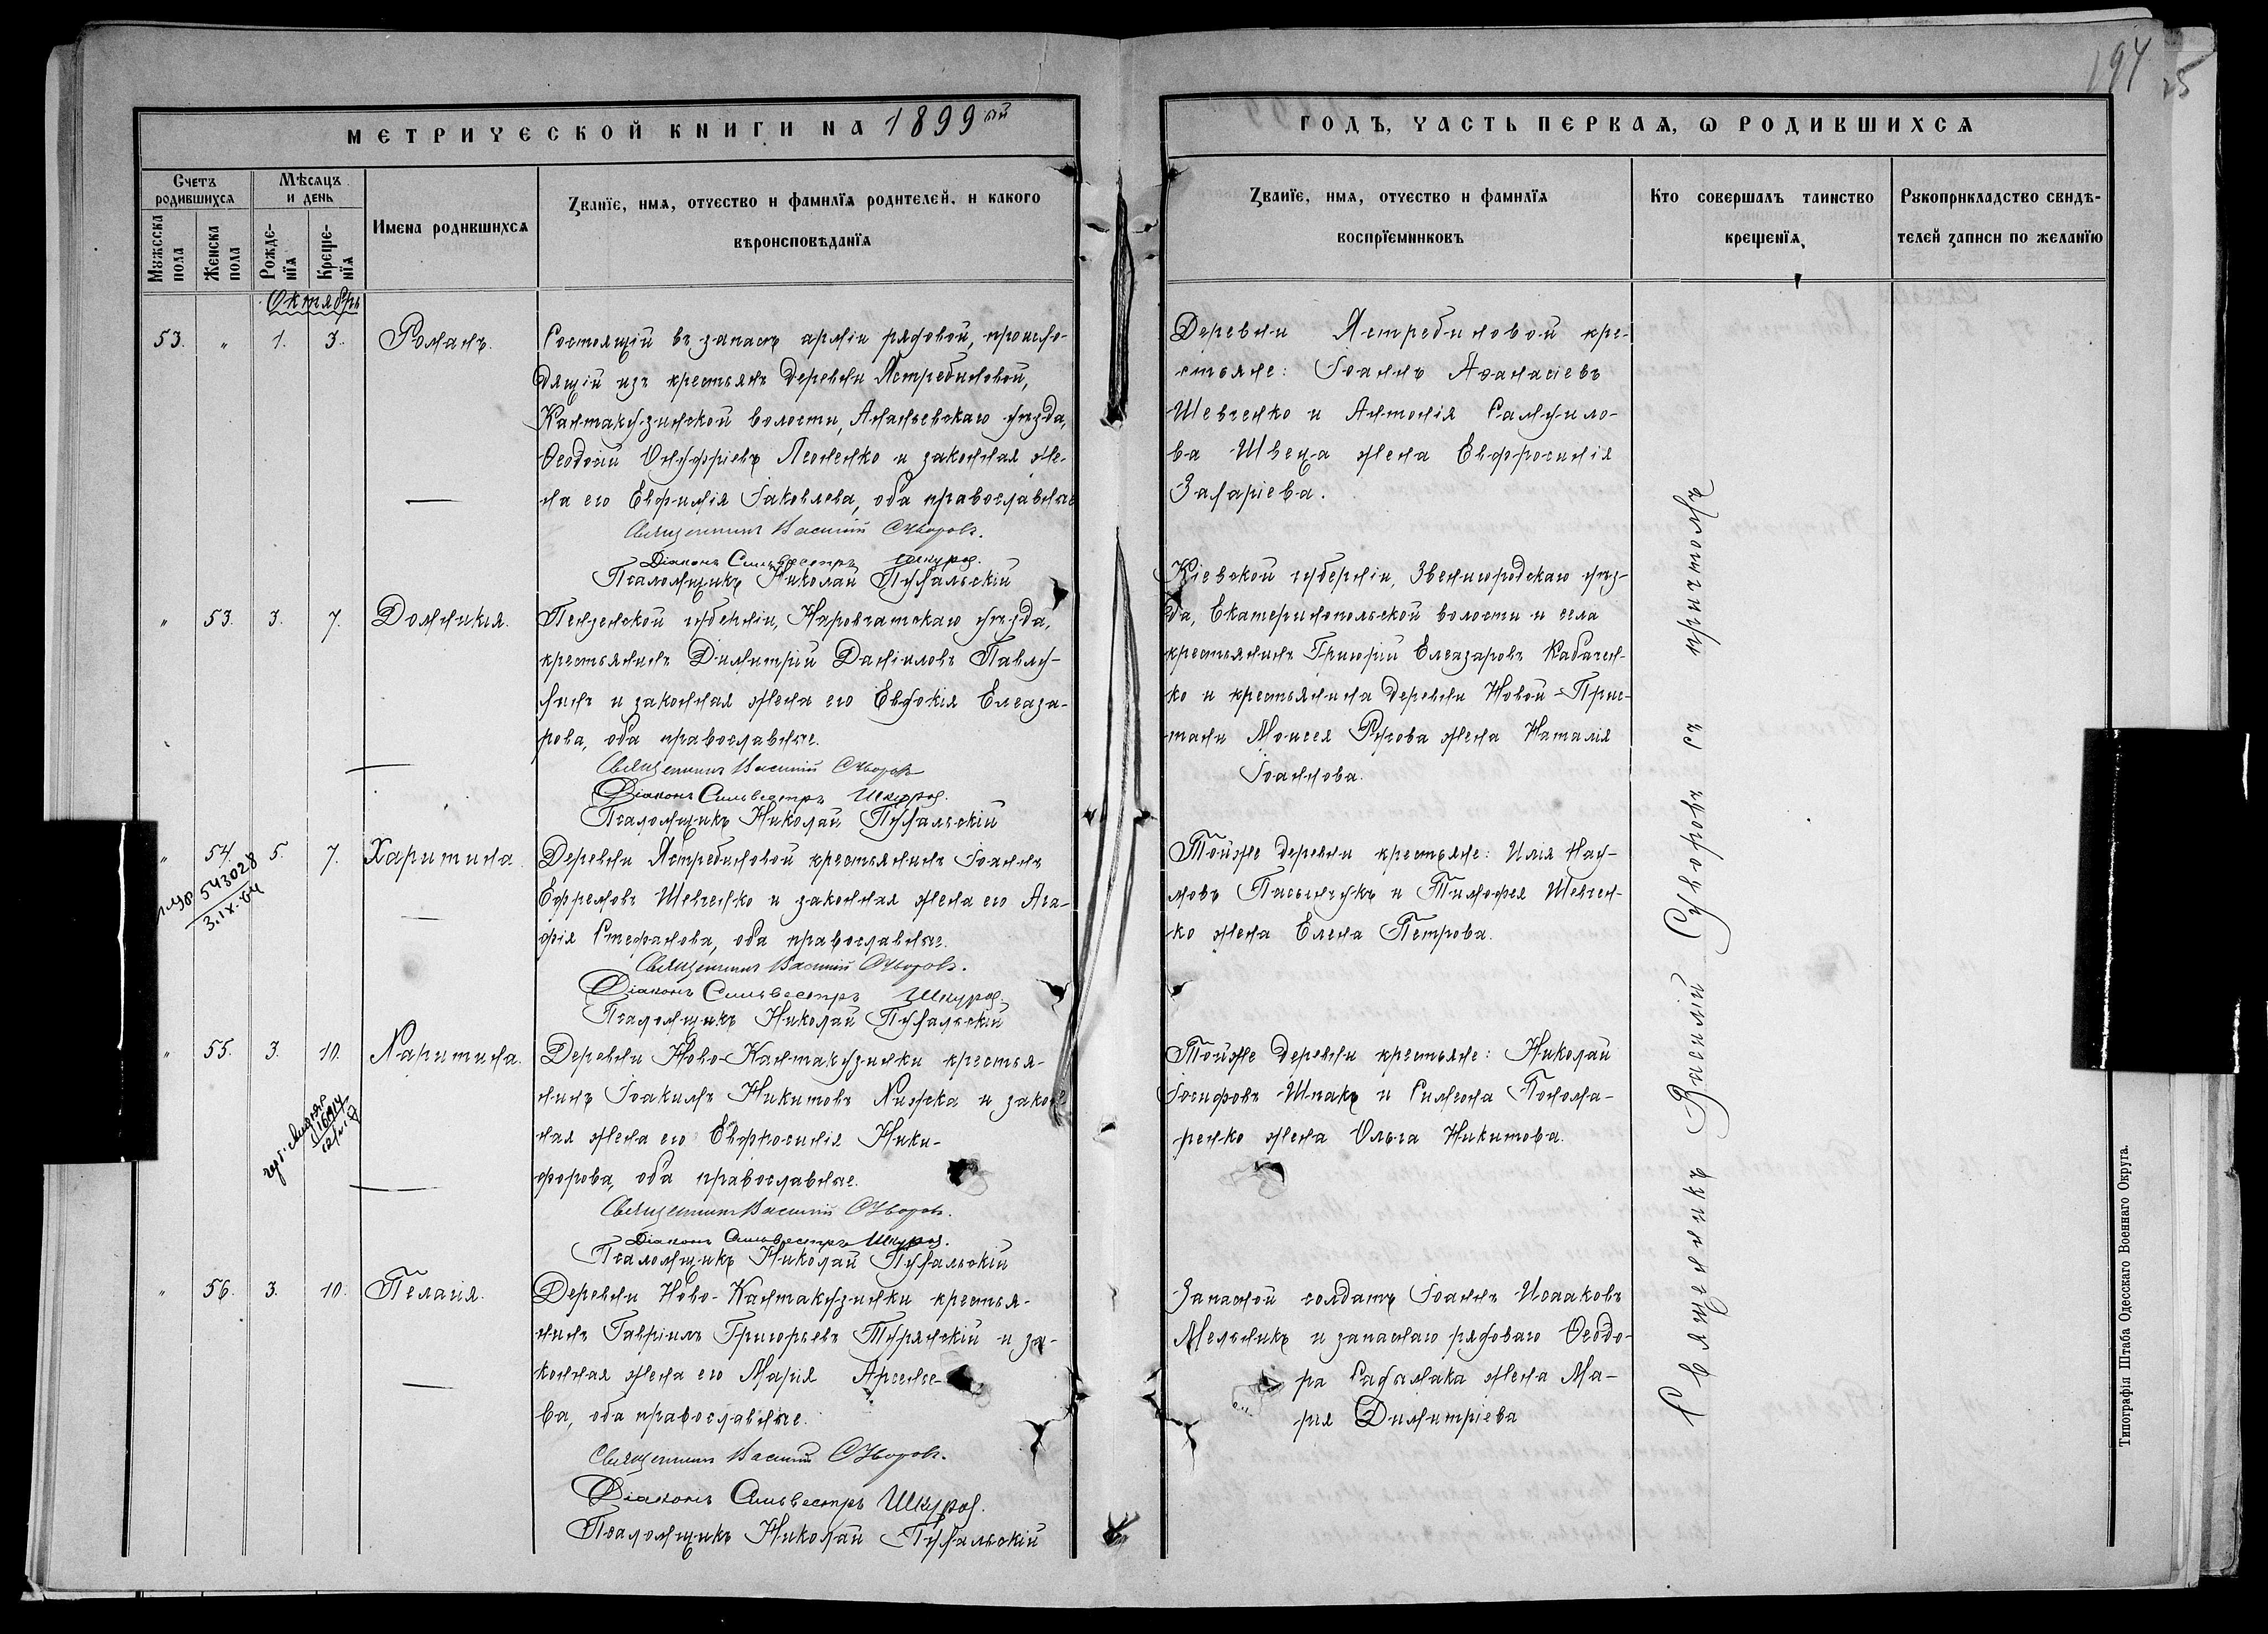 194
25
МЕТРИЧЕСКОЙ КНИГИ НА 1899ый
ГОДЪ, ЧАСТЬ ПЕРВАЯ, Ѡ РОДИВШИХСЯ
Счетъ родившихся
Мѣсяцъ и день
Имена родившихся
Званїе, имя, отчество и фамилїя родителей, и какого
вѣроисповѣданїя
Мужеска пола
Женска пола
Рожденїя
Крещенїя
Званїе, имя, отчество и фамилїя
воспрїемниковъ
Кто совершалъ таинство
крещенїя
Рукоприкладство свидѣ-
телей записи по желанїю
Октябрь
53. " 1. 3. Романъ.
Состоящій въ запасѣ арміи рядовой, происхо-
дящій изъ крестьянъ деревни Ястребиновой,
Кантакузинской волости, Ананьевскаго уѣзда,
Ѳеодосій Онуфріевъ Леоненко и законная же-
на его Евфимія Іаковлева, оба православные
Священникъ Василій Суворовъ.
Діаконъ Сильвестръ
Псаломщикъ Николай Пухальскій
Деревни Ястребиновой кре-
стьяне: Іоаннъ Аѳанасіевъ
Шевченко и Антонія Самуило-
ва Швеца жена Евфросинія
Захаріева.
" 53. 3. 7. Домникія.
Пензенской губерніи, Наровчатскаго уѣзда,
крестьянинъ Димитрій Даніиловъ Павлу-
хинъ и законная жена его Евдокія Елеаза-
рова, оба православные.
Священникъ Василій Суворовъ
Діаконъ Сильвестръ
Псаломщикъ Николай Пухальскій
Кіевской губерніи, Звенигородскаго уѣз-
да, Екатеринопольской волости и села
крестьянинъ Григорій Елеазаровъ Кабачен-
ко и крестьянина деревни Новой-Прис-
тани Моисея Рухова жена Наталія
Іоаннова.
" 54. 5. 7. Харитина.
543028
3.IX.
Деревни Ястребиновой крестьянинъ Іоаннъ
Ефремовъ Шевченко и законная жена его Ага-
фія Стефанова, оба православные.
Священникъ Василій Суворовъ.
Діаконъ Сильвестръ
Псаломщикъ Николай Пухальскій
Тойже деревни крестьяне: Илія Нау-
мовъ Пасынчукъ и Тимофея Шевчен-
ко жена Елена Петрова.
" 55. 3. 10. Харитина.
Деревни Ново-Кантакузинки крестья-
нинъ Іоакимъ Никитовъ Хижка и закон-
ная жена его Евфросинія Ники-
форова, оба православные.
Священникъ Василій Суворовъ.
Діаконъ Сильвестръ
Псаломщикъ Николай Пухальскій
Тойже деревни крестьяне: Николай
Іосифовъ Шпакъ и Симеона Понома-
ренко жена Ольга Никитова.
" 56. 3. 10. Пелагія.
Деревни Ново-Кантакузинки крестья-
нинъ Гавріилъ Григорьевъ Турянскій и за-
конная жена его Марія Арсенье-
ва, оба православные.
Священникъ Василій Суворовъ.
Діаконъ Сильвестръ
Псаломщикъ Николай Пухальскій
Запасной солдатъ Іоаннъ Исааковъ
Мельникъ и запаснаго рядоваго Ѳеодо-
ра жена Ма-
рія Димитріева
Священникъ Василій Суворовъ съ причтомъ
Типографія Штаба Одесскаго Военнаго Округа.